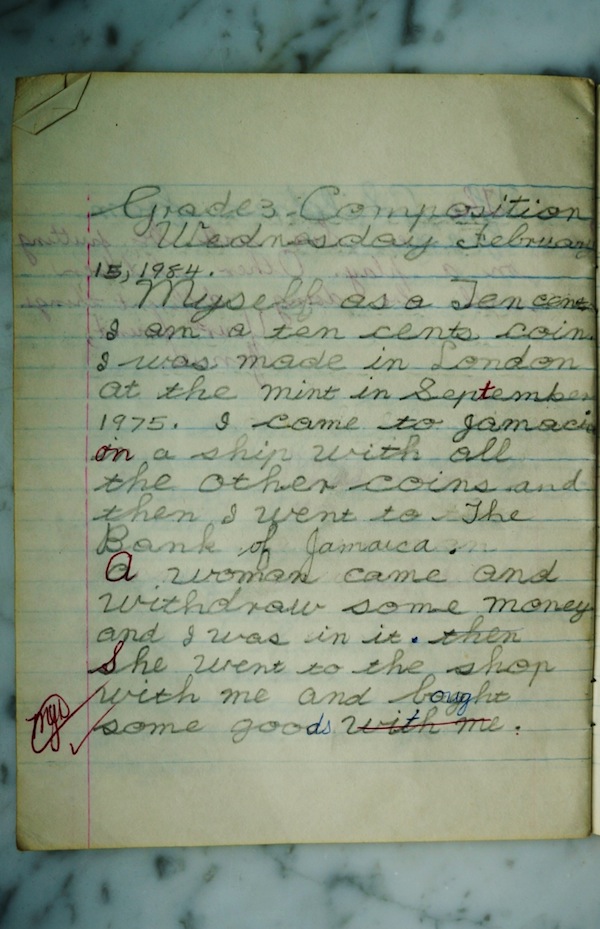 Grade 3 - Composition
Wednesday February
15, 1984.
Myself as a Ten cents
I am a ten cents coin.
I was made in London
at the mint in September
1975. I came to Jamaica
in a ship with all
the other coins and
then I went to The
Bank of Jamaica.
A woman came and
withdraw some money
and I was in it. then
She went to the shop
with me and bought
some goods with me.